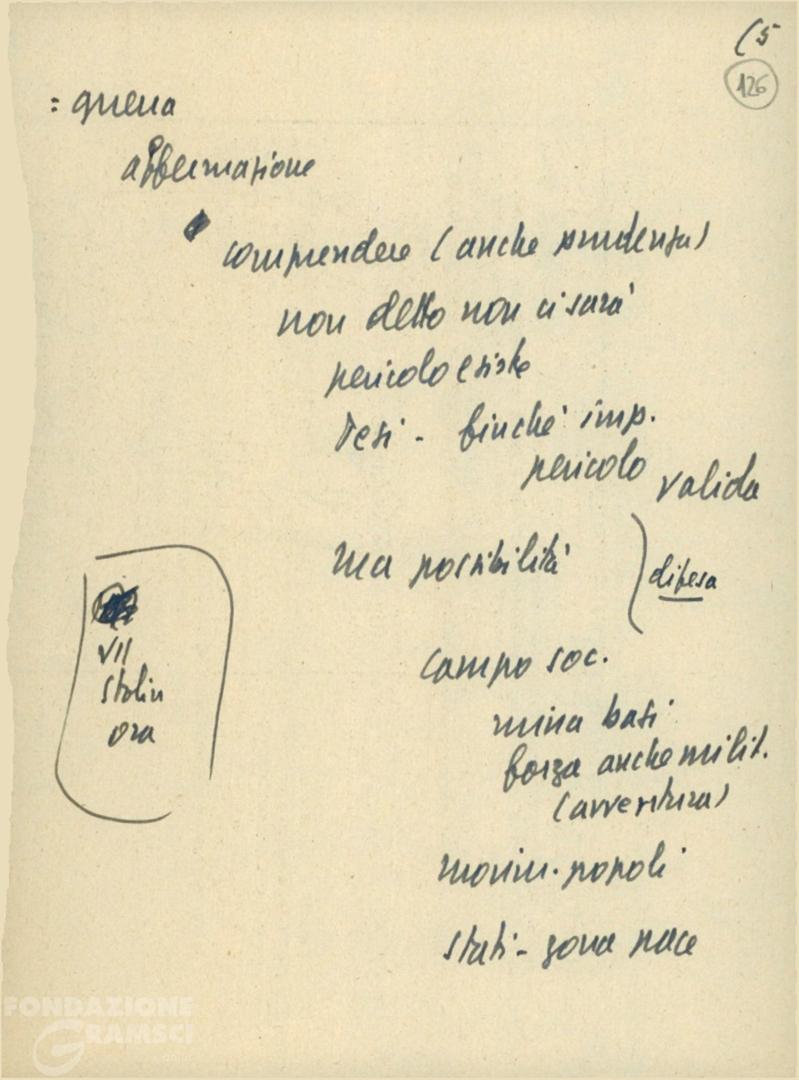 (5
126
: guerra
affermazione
comprendere (anche prudenza)
non detto non ci sarà
pericolo esiste
Tesi - finché imp.
pericolo valida
ma possibilità
difesa
VII
Stalin
ora
campo soc.
mina basi
forza anche milit.
(avventura)
movim. popoli
stati - zona pace
FONDAZIONE
GRAMSCI